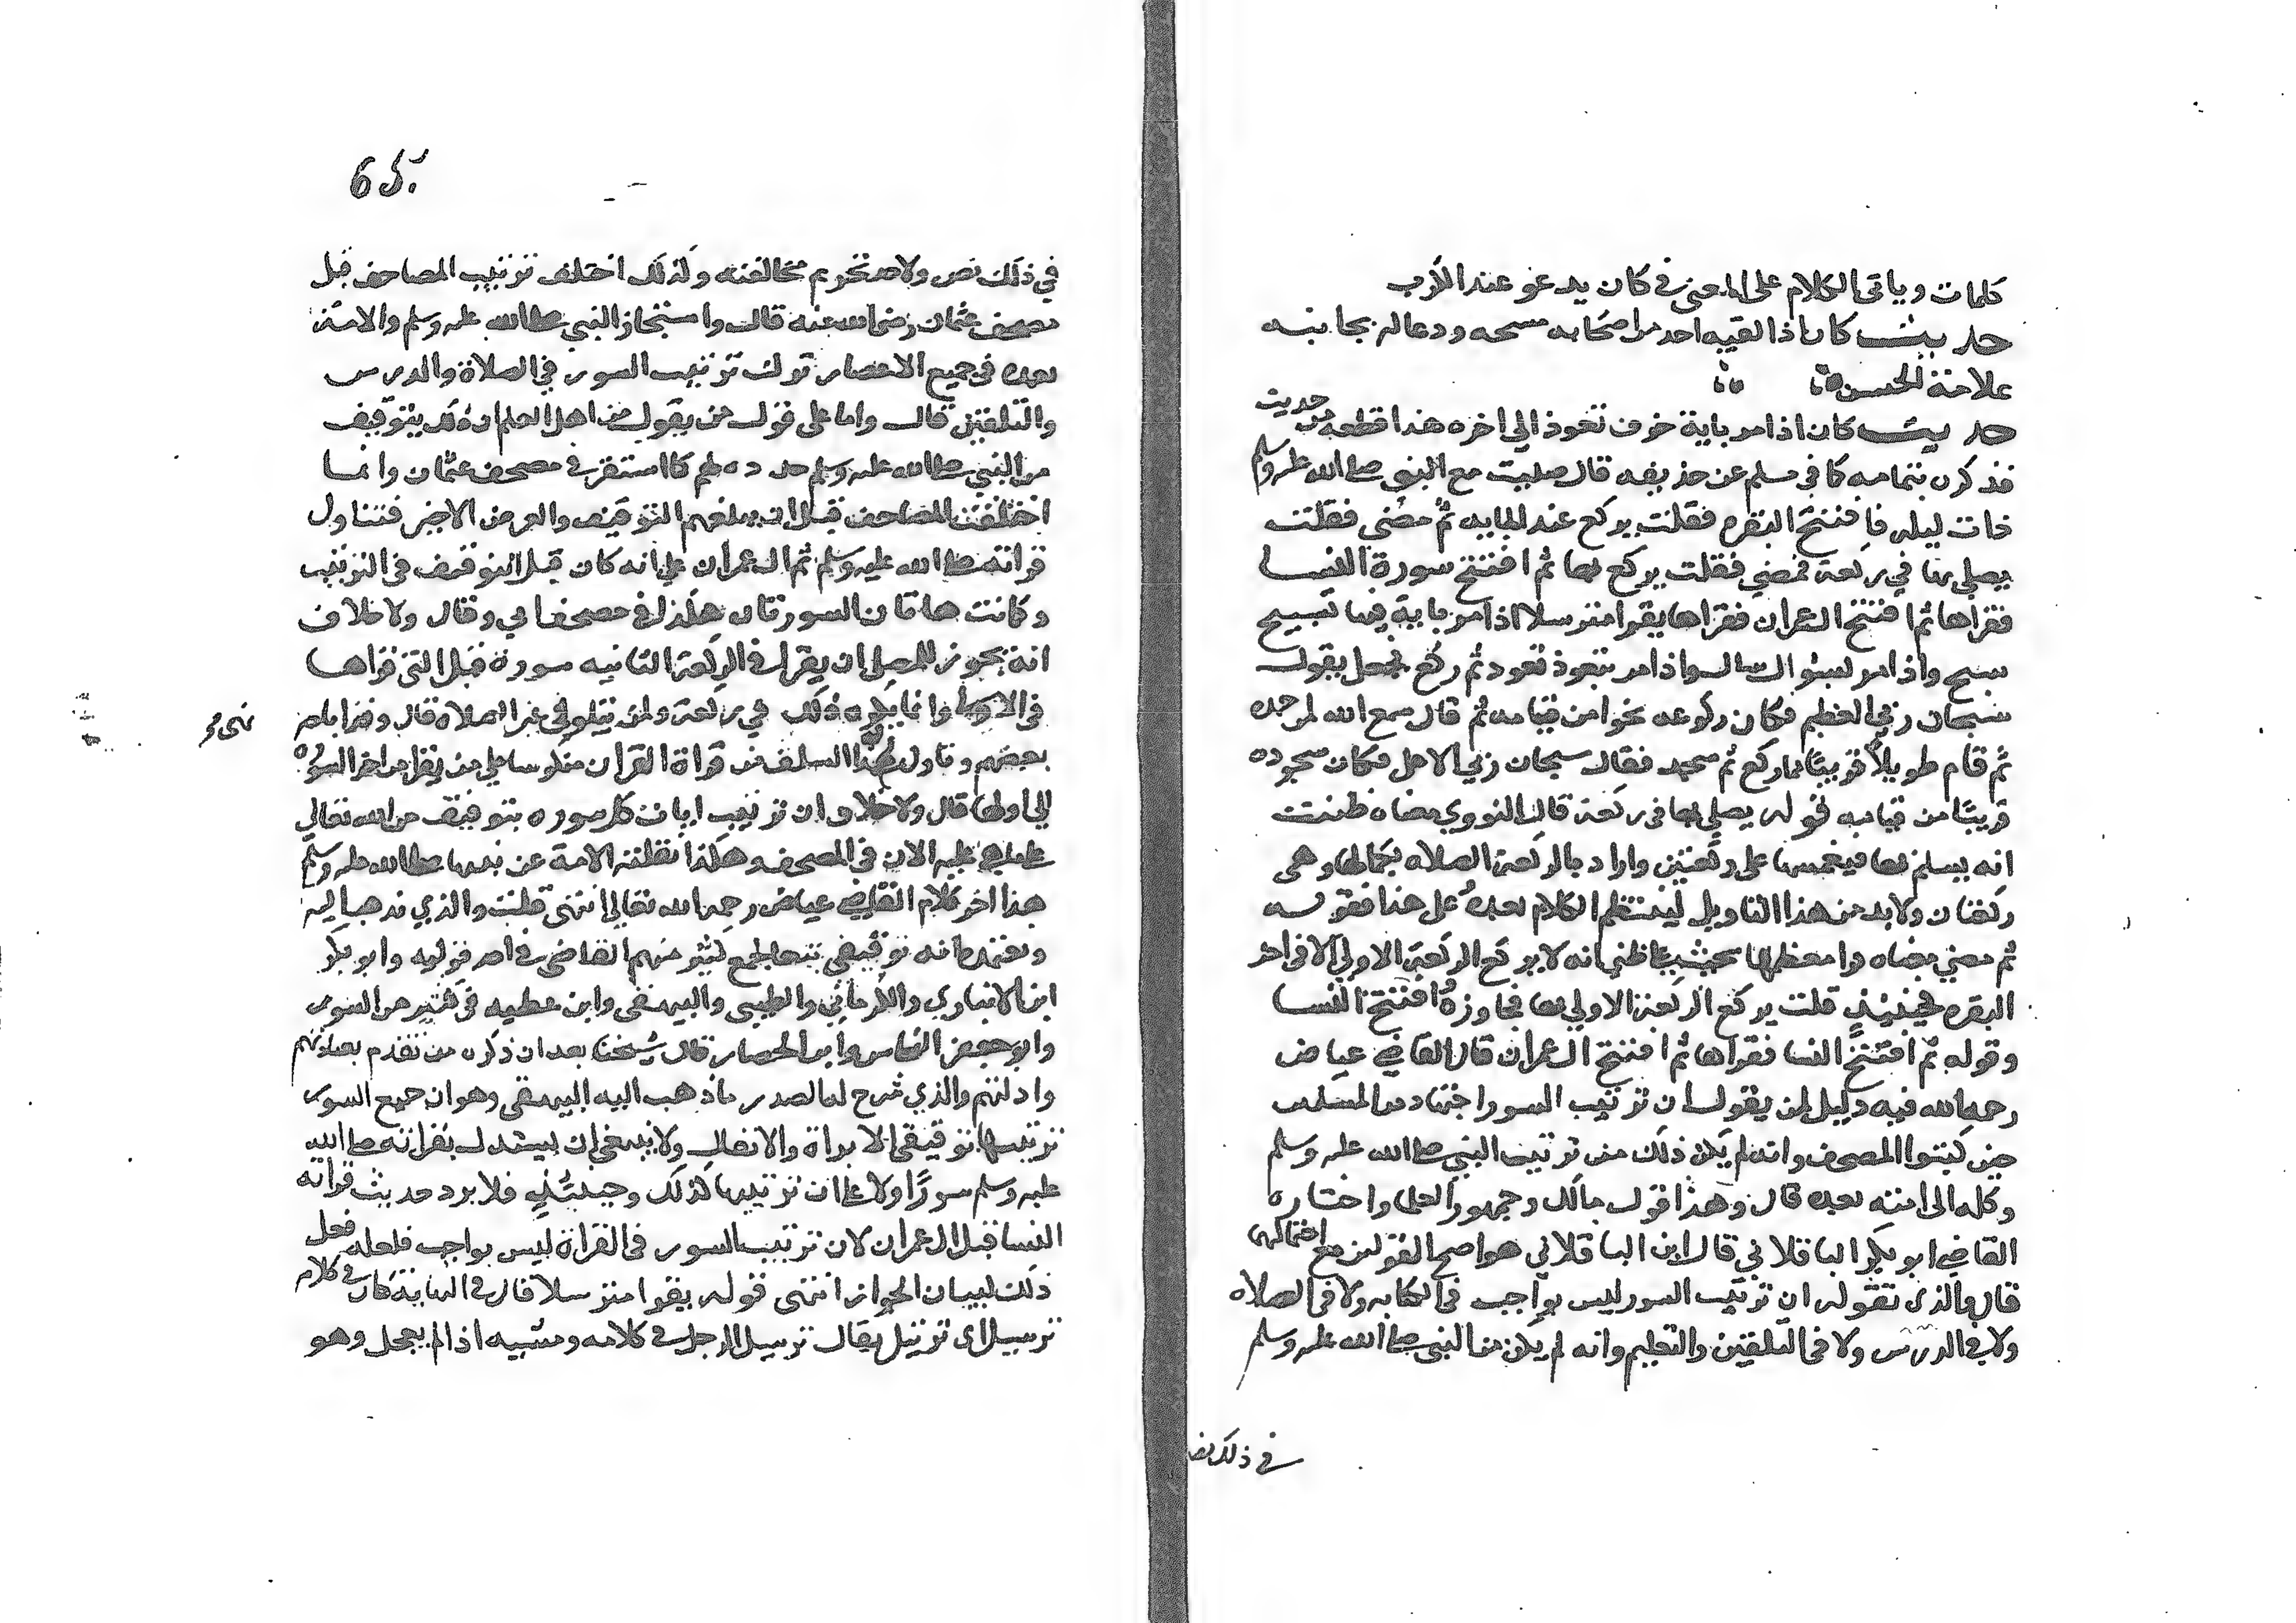 كلمات وياتى الكلام على المعنى في كان يدعو عند الكرب
حديث كان اذا لقيه احد من اصحابه مسحه ودعا له بجانبه
علامة الحسن
حديث كان اذا مر باية خوف تعوذ الى اخره هذا قطعة من حديث
فذكره بتمامه كما في مسلم عن حذيفه قال صليت مع النبي صلى الله عليه وسلم
ذات ليله فافتتح البقره فقلت يركع عند المايه ثم مضى فقلت
يصلي بها في ركعة فمضي فقلت يركع بها ثم افتتح سورة النسا
فقراها ثم افتتح ال عمران فقراها يقرا مترسلا اذا مر باية فيها تسبيح
سبح واذا مر بسوال سال واذا مر بتعوذ تعوذ ثم ركع فجعل يقول
سبحان ربي العظيم فكان ركوعه نحوا من قيامه ثم قال سمع الله لمن حمده
ثم قام طويلا قريبا مما ركع ثم سجد فقال سبحان ربي الاعلى فكان سجوده
قريبا من قيامه قوله يصلي بها في ركعة قال النووي معناه ظننت
انه يسلم بها فيقسمها على ركعتين واراد بالركعة الصلاه بكمالها وهى
ركعتان ولا بد من هذا التاويل لينتظم الكلام بعده وعلى هذا فقوله
ثم مضي معناه قرا معظمها بحيث غلب على ظني انه لا يركع الركعة الاولي الا في اخر
البقره فحينئذ قلت يركع الركعة الاولي بها فجاوزها وافتتح النسا
وقوله ثم افتتح النسا فقراها ثم افتتح ال عمران قال القاضي عياض
رحمه الله فيه دليل لمن يقول ان ترتيب السور اجتهاد من المسلمين
حين كتبوا المصحف وانه لم يكن ذلك من ترتيب النبي صلى الله عليه وسلم
وكله الى امته بعده قال وهذا قول مالك وجمهور العلما واختاره
القاضي ابو بكر الباقلاني قال ابن الباقلاني هو اصح القولين مع احتمالهما
قال والذى نقوله ان ترتيب السور ليس بواجب في الكتابه ولا في الصلاه
ولا في الدرس ولا في التلقين والتعليم وانه لم يكن من النبي صلى الله عليه وسلم
في ذلك نص
65
في ذلك نص ولا حد تحرم مخالفته ولذلك اختلف ترتيب المصاحف قبل
مصحف عثمان رضي الله عنه قال واستجاز النبي صلى الله عليه وسلم والامة
بعده في جميع الاعصار ترك ترتيب السور في الصلاة والدرس
والتلقين قال واما على قول من يقول من اهل العلم ان ذلك بتوقيف
من النبي صلى الله عليه وسلم حدده لهم كما استقر في مصحف عثمان وانما
اختلفت المصاحف قبل ان يبلغهم التوقيف والعرض الاخير فتناول
قراته صلى الله عليه وسلم ثم ال عمران على انه كان قبل التوقيف في الترتيب
وكانت هاتان السورتان هكذا في مصحف ابي وقال ولا خلاف
انه يجوز للمصلي ان يقرا في الركعة الثانيه سورة قبل التي قراها
في الاولى وانما يكره ذلك في ركعة ولمن يتلو في غير الصلاه قال وقد اباحه
نهى
بعضهم وتاول السلف عن قراة القران منكوسا على من يقرا من اخر السوره
الي اولها قال ولا خلاف ان ترتيب ايات كل سوره بتوقيف من الله تعالي
على ما هي عليه الان في المصحف وهكذا نقلته الامة عن نبيها صلى الله عليه وسلم
هذا اخر كلام القاضي عياض رحمه الله تعالي انتهى قلت والذي نذهب اليه
ونعتمده انه توقيفي تبعا لجمع كثير منهم القاضى في احد قوليه وابو بكر
ابن الانباري والكرماني والطيبى والبيهقى وابن عطيه في كثير من السور
وابو جعفر النحاس وابن الحصار قال شيخنا بعد ان ذكره من تقدم بعباراتهم
وادلتهم والذي شرح له الصدر ما ذهب اليه البيهقى وهو ان جميع السور
ترتيبها توقيفى الا براة والانفال ولا ينبغي ان يستدل بقراته صلى الله
عليه وسلم سورا ولا على ان ترتيبها كذلك وحينئذ فلا يرد حديث قراته
النسا قبل ال عمران لان ترتيب السور في القراة ليس بواجب فلعله فعل
ذلك لبيان الجواز انتهى قوله يقرا مترسلا قال في النهاية كان في كلامه
ترسيل اى ترتيل يقال ترسل الرجل في كلامه ومشيه اذا لم يعجل وهو